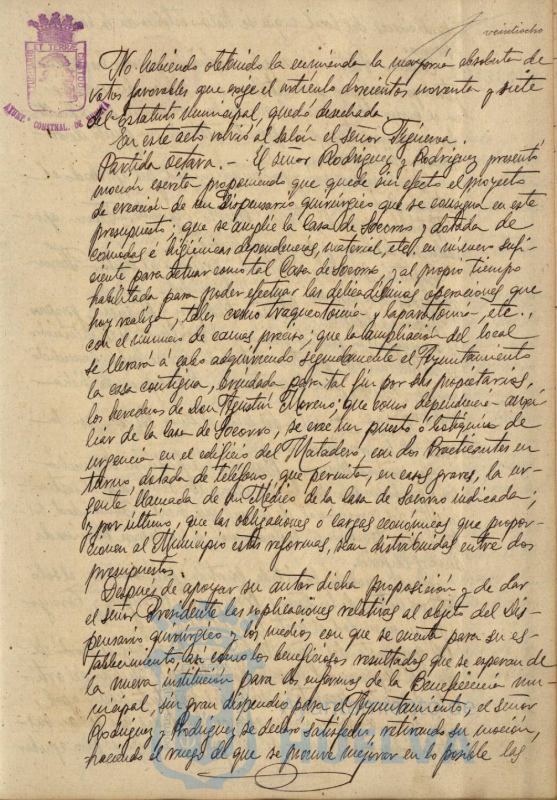 veintiocho
No habiendo obtenido la enmienda la mayoría absoluta de
votos favorables que exige el artículo doscientos noventa y siete
del Estatuto Municipal, quedó desechada.
En este acto volvió al salón el señor Figueroa.
Partida octava.- El señor Rodríguez y Rodríguez presentó
moción escrita proponiendo que quede sin efecto el proyecto
de creación de un Dispensario quirúrgico que se consigna en este
presupuesto; que se amplíe la Casa de Socorro y dotada de
cómodas é higiénicas dependencias, material, etc. en número sufi-
ciente para actuar como tal Casa de Socorro, y al propio tiempo
habilitada para poder efectuar las delicadísimas operaciones que
hoy realiza, tales como traqueotomía y laparotomía, etc.,
con el número de camas preciso; que la ampliación del local
se llevará á cabo adquiriendo seguidamente el Ayuntamiento
la casa contigua, brindada para tal fin por sus propietarios,
los herederos de Don Agustín Moreno; que como dependencia auxi-
liar de la Casa de Socorro, se cree un puesto ó botiquín de
urgencia en el edificio del Matadero, con dos Practicantes en
turno dotada de teléfono, que permita, en casos graves, la ur-
gente llamada de un Médico de la Casa de Socorro indicada;
y por último, que las obligaciones ó cargas económicas que propor-
cionen al Municipio estas reformas, sean distribuidas entre dos
presupuestos.
Después de apoyar su autor dicha proposición y de dar
el señor Presidente las explicaciones relativas al objeto del Dis-
pensario quirúrgico y los medios con que se cuenta para su es-
tablecimiento, así como los beneficiosos resultados que se esperan de
la nueva institución para los enfermos de la Beneficencia mu-
nicipal, sin gran dispendio para el Ayuntamiento, el señor
Rodríguez y Rodríguez se declaró satisfecho retirando su moción,
haciendo el ruego de que se procure mejorar en lo posible las